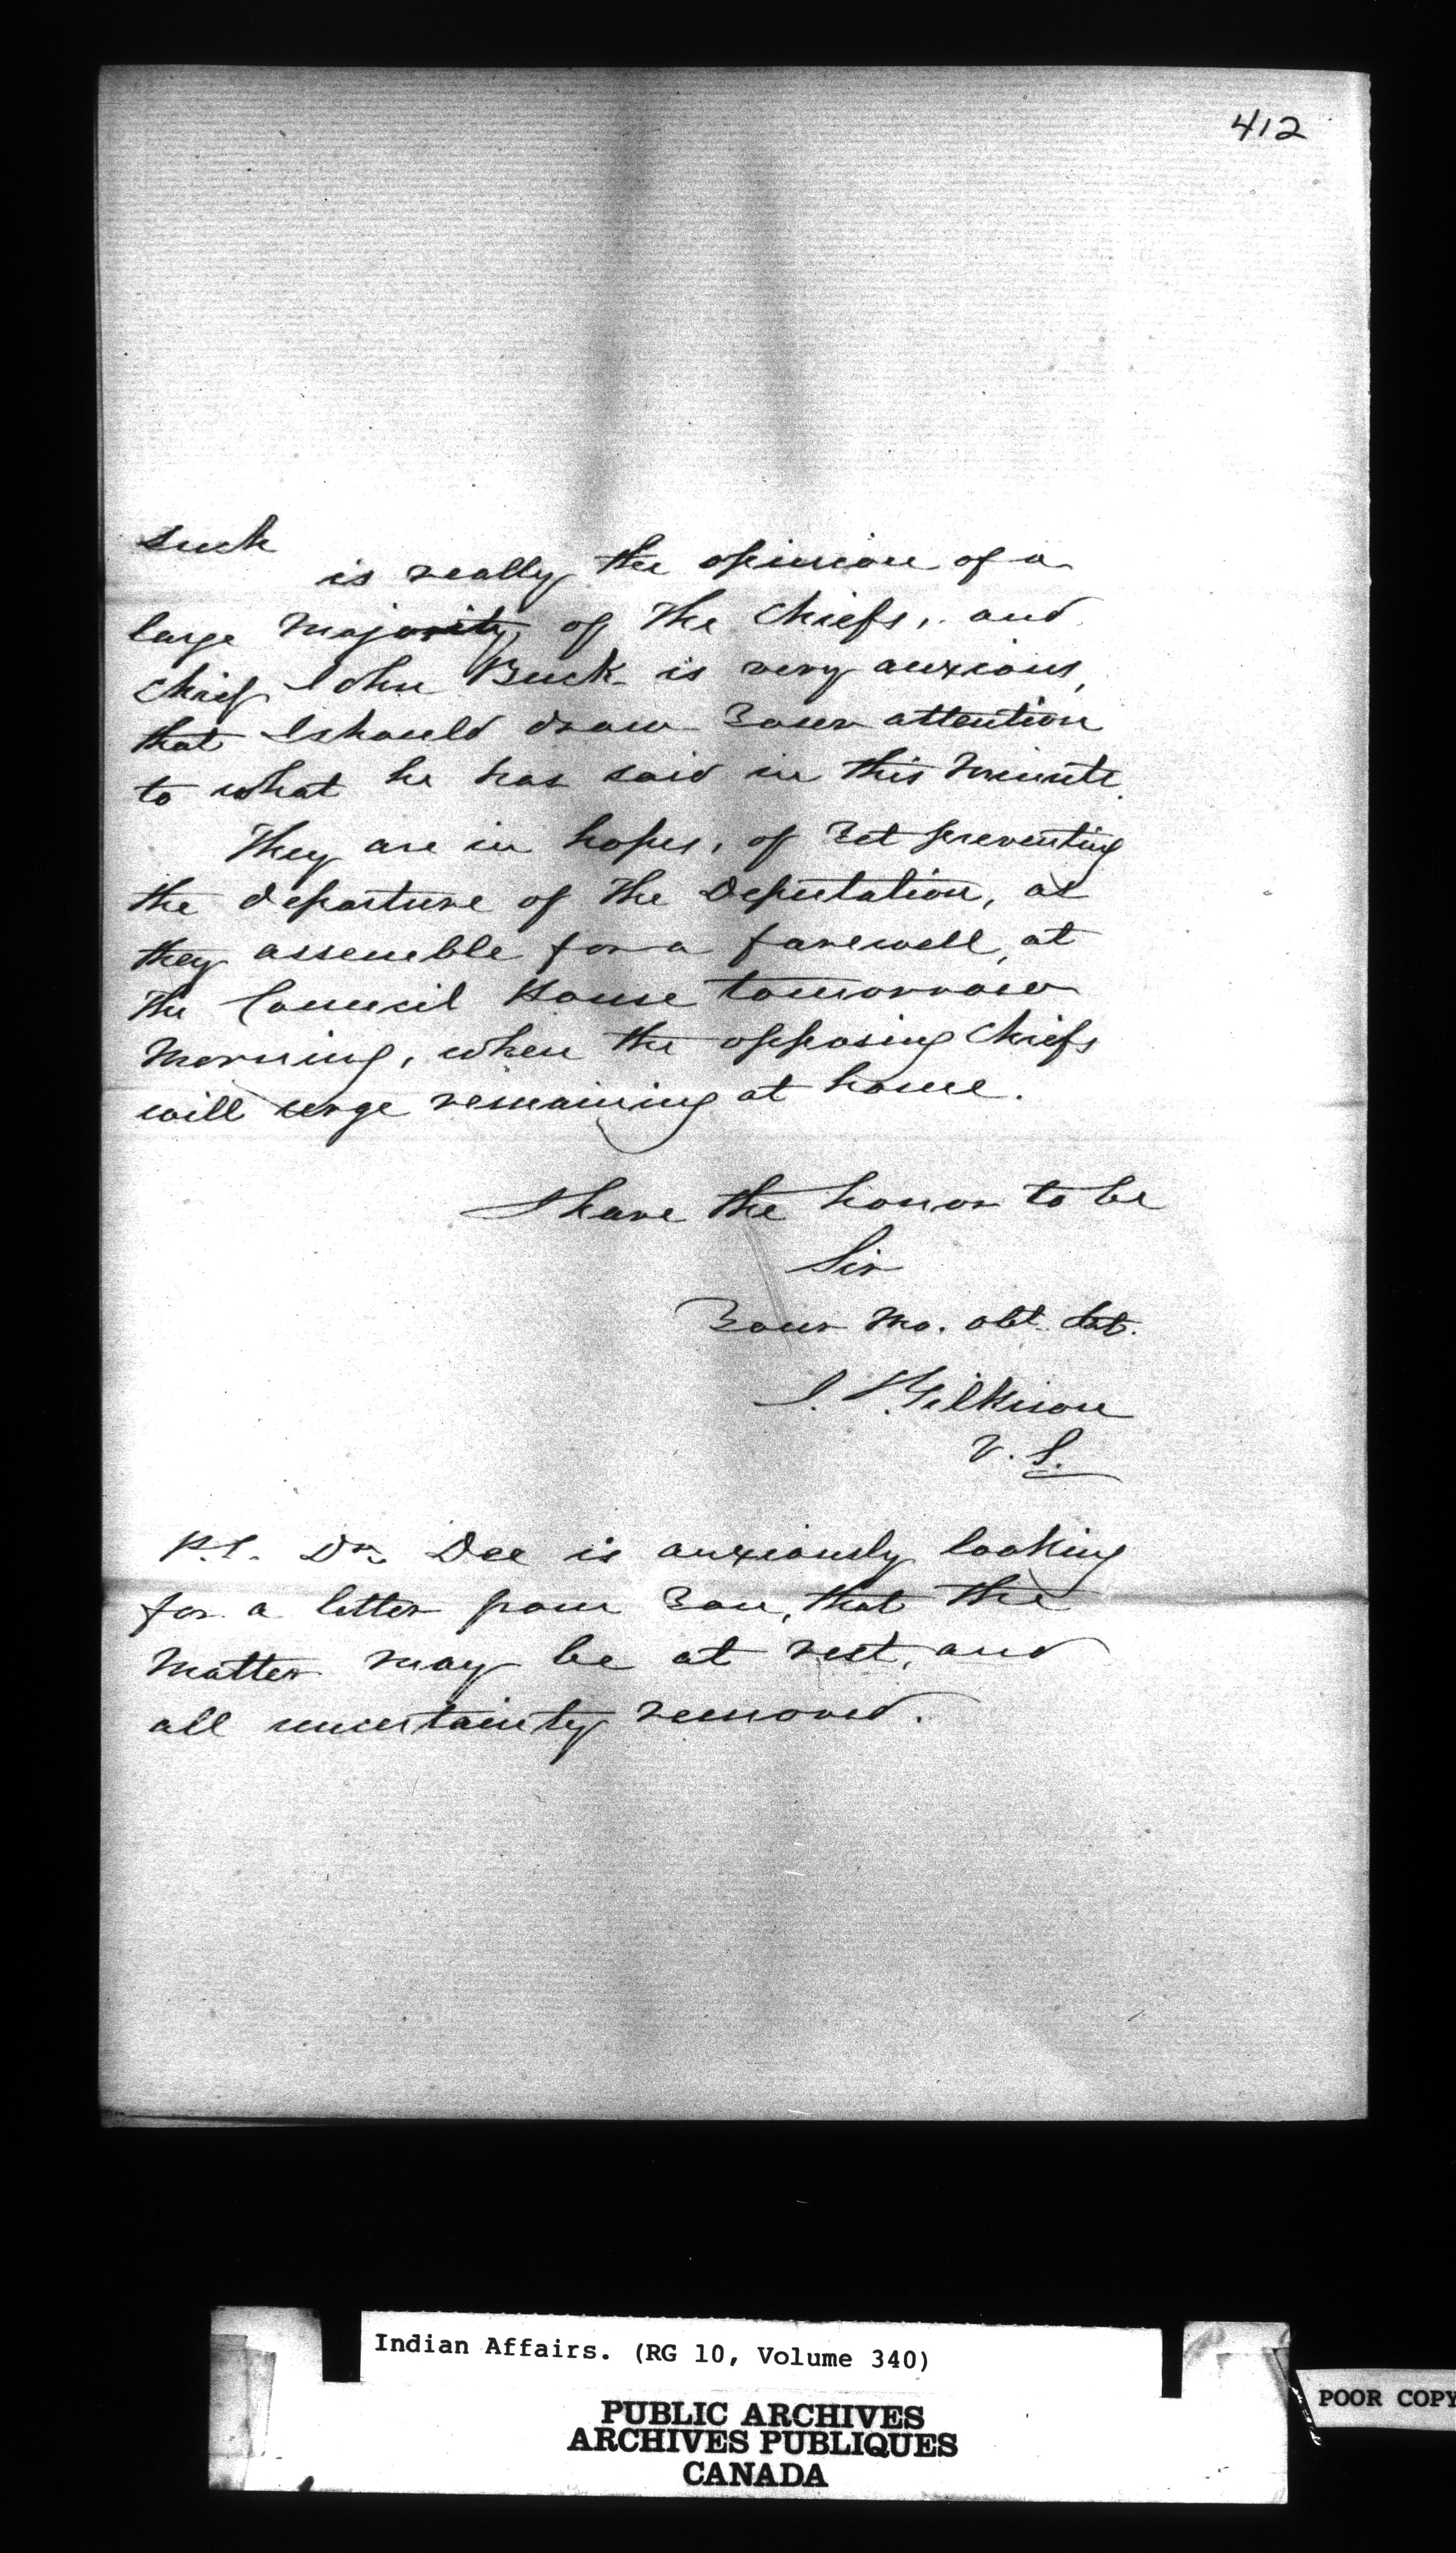 412
such
is really the opinion of a
large majority, of the Chiefs, and
Chief John Buck is very anxious,
that I should draw Your attention
to what he has said in this Minute.
They are in hopes, of Yet preventing
the departure of the Deputation, as
they assemble for a farewell, at
the Council House tomorrow
Morning, when the opposing Chiefs
will urge remaining at home.
I have the honor to be
Sir
Your Mo. obt. Svt.
J. T. Gilkison
V. S.
P.S. Dr. Dee is anxiously looking
for a letter from You, that the
Matter may be at rest, and
all uncertainty removed.
Indian Affairs. (RG 10, Volume 340)
PUBLIC ARCHIVES
ARCHIVES PUBLIQUES
CANADA
POOR COPY